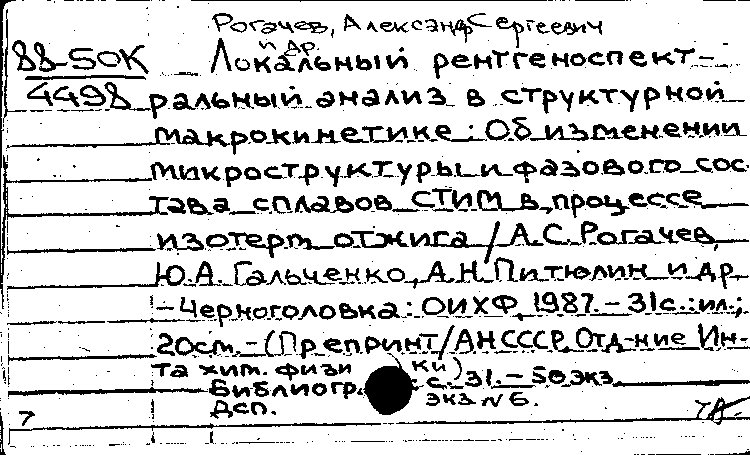 Рогачев, Александр Сергеевич
и др.
88-50К Локальный рентгеноспект-
4498 ральный анализ в структурной
макрокинетике: Об изменении
микроструктуры и фазового сос-
тава сплавов СТИМ в процессе
изотерм отжига / А.С. Рогачев,
Ю.А. Гальченко, А.Н. Питюлин и др.
– Черноголовка: ОИХФ, 1987. – 31с.: ил.;
20см. – (Препринт/АН СССР, Отд-ние Ин-
та хим. физики)
Библиогр.: с. 31. – 50 экз.
Дсп. экз N 6.
7